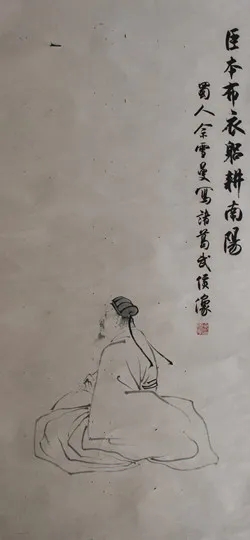 臣本布衣躬耕南陽
蜀人余雪曼寫諸葛武侯像